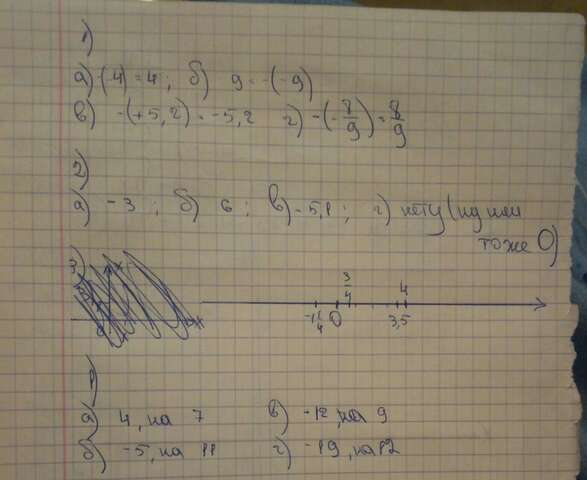 1)
а) -(-4) = 4; б) 9 = -(-9)
в) -(+5,2) = -5,2 г) -(-8/9) = 8/9
2)
а) -3; б) 6; в) -5,8; г) нету (ну или
тоже 0)
3)
3/4 4
0 3,5
1)
а) 4, на 7 в) -12, на 9
б) -5, на 11 г) -19, на 12